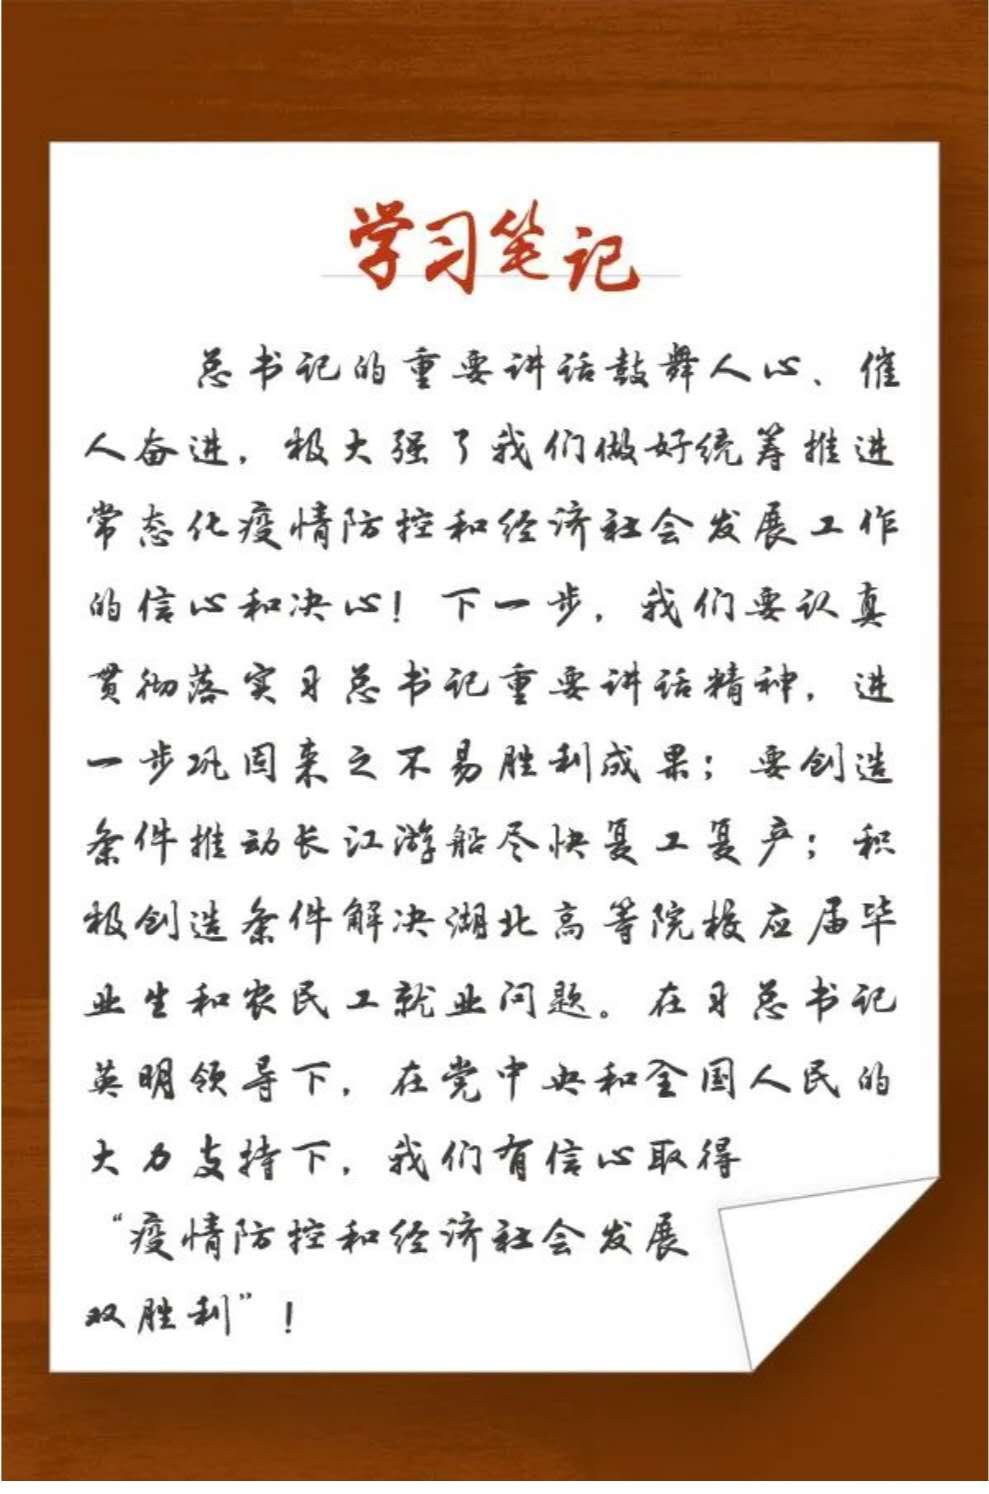 学习笔记
总书记的重要讲话鼓舞人心、催
人奋进，极大强了我们做好统筹推进
常态化疫情防控和经济社会发展工作
的信心和决心！下一步，我们要认真
贯彻落实习总书记重要讲话精神，进
一步巩固来之不易胜利成果；要创造
条件推动长江游船尽快复工复产；积
极创造条件解决湖北高等院校应届毕
业生和农民工就业问题。在习总书记
英明领导下，在党中央和全国人民的
大力支持下，我们有信心取得
“疫情防控和经济社会发展
双胜利”！